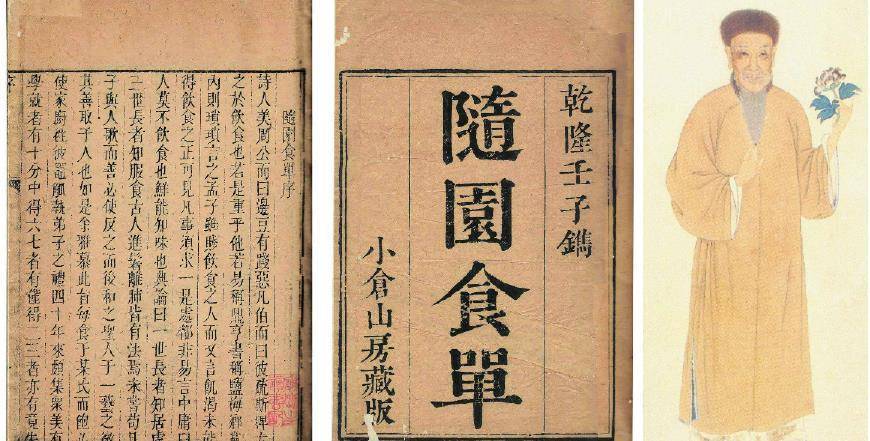 乾隆壬子鐫
隨園食單
小倉山房藏版
隨園食單序
詩人美周公而曰籩豆有踐惡凡伯而曰彼疏斯稗
之於飲食也若是重乎他若易稱鼎亨書稱鹽梅鄉
內則瑣瑣言之孟子雖賤飲食之人而又言飢渴未
得飲食之正可見凡事須求一是處都非易言中庸曰
人莫不飲食也鮮能知味也典論曰一世長者知居
三世長者知服食古人進鬐離肺皆有法焉未嘗苟
子與人歌而善必使反之而後和之聖人于一藝之
其善取于人也如是余雅慕此旨每食于某氏而飽
使家廚往彼竈觚執弟子之禮四十年來頗集眾美有
學就者有十分中得六七者有僅得二三者亦有竟失
序